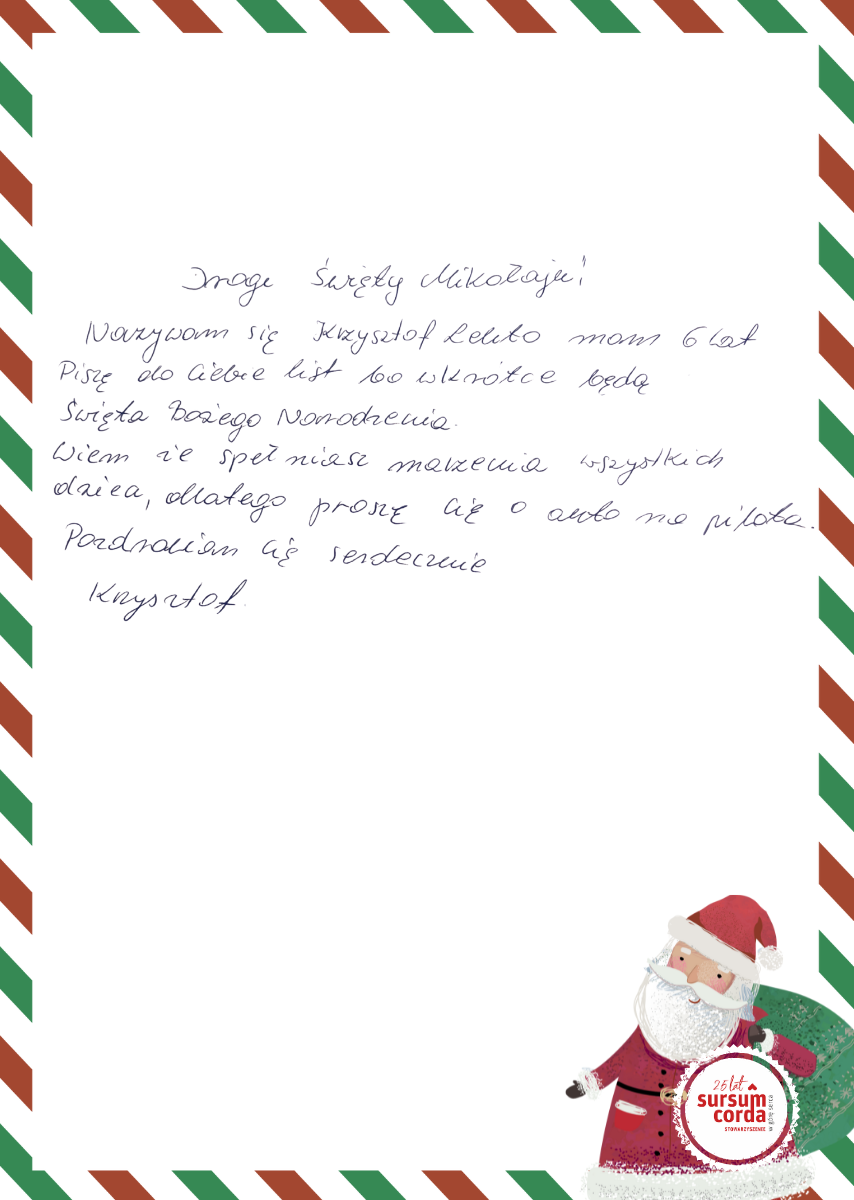 Drogi Święty Mikołaju!
Nazywam się Krzysztof mam 6 lat
Piszę do Ciebie list bo wkrótce będą
Święta Bożego Narodzenia.
Wiem że spełniasz marzenia wszystkich
dzieci, dlatego proszę Cię o auto na pilota.
Pozdrawiam Cię serdecznie
Krzysztof.
25 lat
sursum
corda
STOWARZYSZENIE
w górę serca